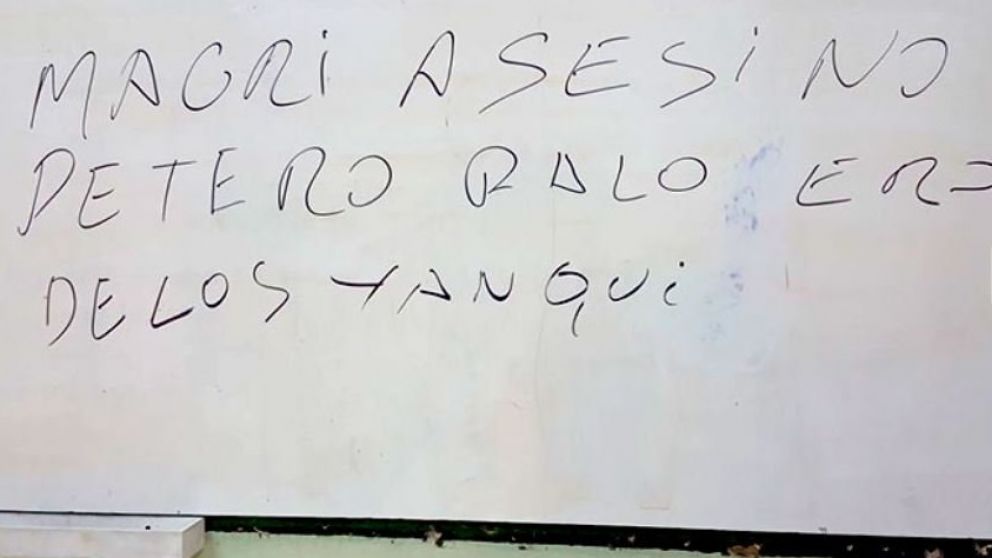 MACRI ASESINO
PETERO PALO ERO
DE LOS YANQUI